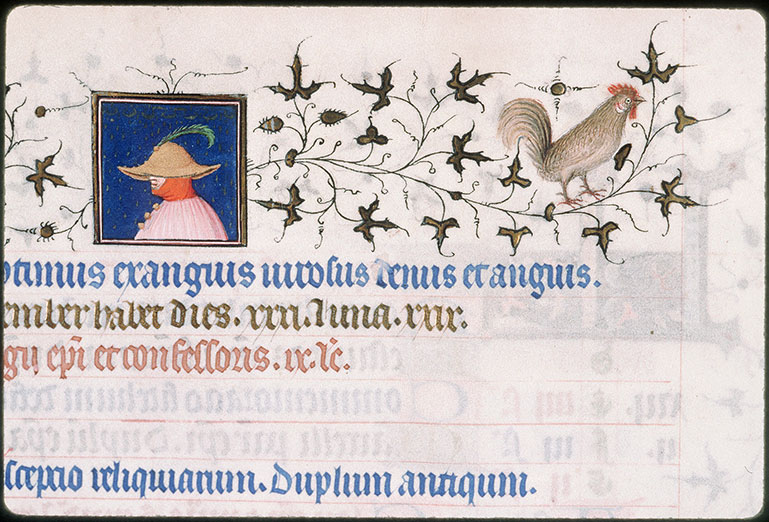 ptimus exanguis uirosus denus et anguis.
ember habet dies. xxxi. luna. xxix.
gij ep̄i et confessoris. ix. lc̄.
scepcio reliquiarum. Duplum antiqum.